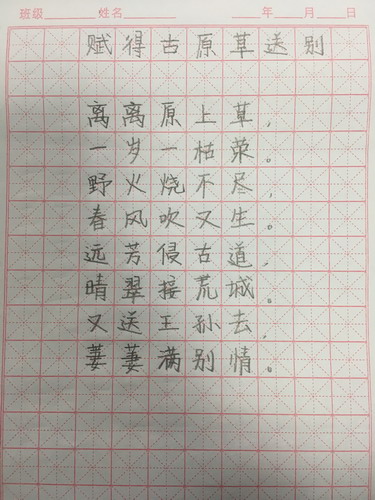 班级 姓名 年 月 日
赋得古原草送别
离离原上草,
一岁一枯荣。
野火烧不尽,
春风吹又生。
远芳侵古道,
晴翠接荒城。
又送王孙去,
萋萋满别情。